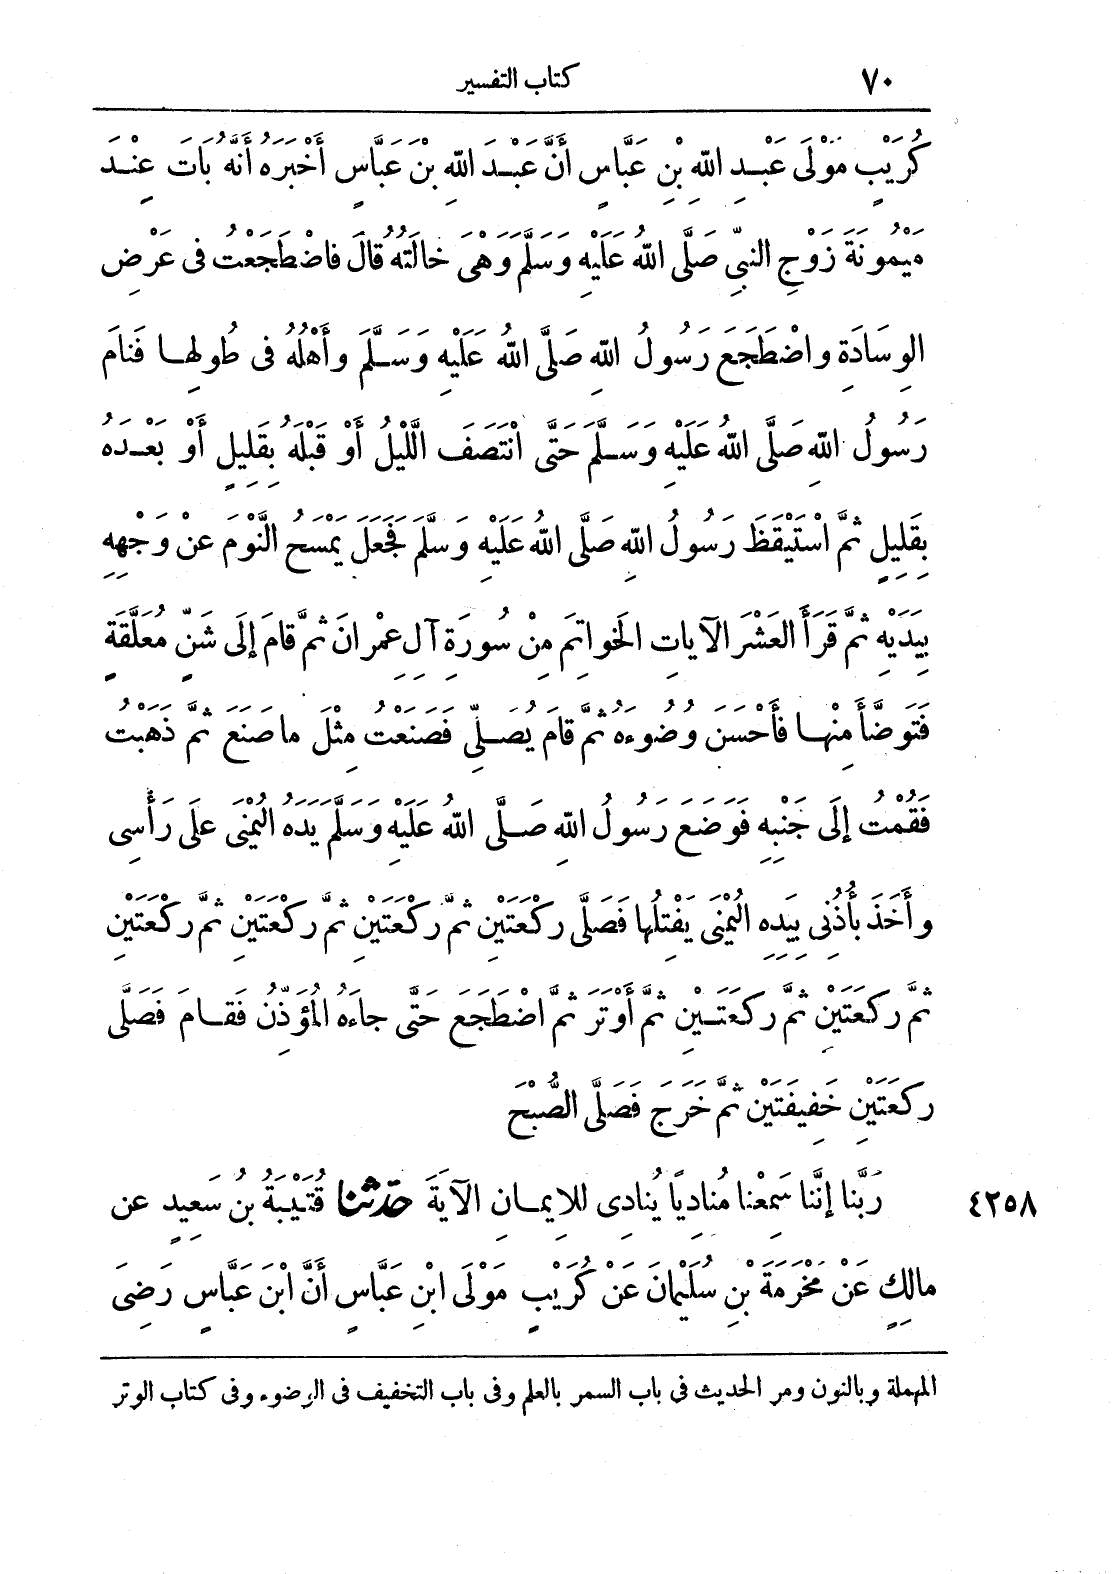 ٧٠ كتاب التفسير
كُرَيْبٍ مَوْلَى عَبْدِ اللهِ بْنِ عَبَّاسٍ أَنَّ عَبْدَ اللهِ بنَ عَبَّاسٍ أَخْبَرَهُ أَنَّهُ بَاتَ عِنْدَ
مَيْمُونَةَ زَوْجِ النبيِّ صَلَّى اللهُ عَلَيْهِ وَسَلَّمَ وَهْىَ خالَتُهُ قالَ فاضْطَجَعْتُ فى عَرْضِ
الوِسَادَةِ واضْطَجَعَ رَسُولُ اللهِ صَلَّى اللهُ عَلَيْهِ وَسَلَّمَ وأَهْلُهُ فى طُولِها فَنامَ
رَسُولُ اللهِ صَلَّى اللهُ عَلَيْهِ وَسَلَّمَ حَتَّى انْتَصَفَ اللَّيْلُ أَوْ قَبْلَهُ بِقَلِيلٍ أَوْ بَعْدَهُ
بِقَلِيلٍ ثمَّ اسْتَيْقَظَ رَسُولُ اللهِ صَلَّى اللهُ عَلَيْهِ وَسَلَّمَ فَجَعَلَ يَمْسَحُ النَّوْمَ عنْ وَجْهِهِ
بِيَدَيْهِ ثمَّ قَرَأَ العَشْرَ الآياتِ الخَواتِمَ مِنْ سُورَةِ آلِ عِمْرانَ ثمَّ قامَ إلَى شَنٍّ مُعَلَّقَةٍ
فَتَوَضَّأَ مِنْها فأَحْسَنَ وُضُوءَهُ ثمَّ قامَ يُصَلِّى فَصَنَعْتُ مِثْلَ ما صَنَعَ ثمَّ ذَهَبْتُ
فَقُمْتُ إلَى جَنْبِهِ فَوَضَعَ رَسُولُ اللهِ صَلَّى اللهُ عَلَيْهِ وَسَلَّمَ يَدَهُ اليُمْنَى علَى رَأْسِى
وأَخَذَ بأُذُنِى بِيَدِهِ اليُمْنَى يَفْتِلُها فَصَلَّى ركْعَتَيْنِ ثمَّ ركْعَتَيْنِ ثمَّ ركْعَتَيْنِ ثمَّ ركْعَتَيْنِ
ثمَّ ركعَتَيْنِ ثمَّ ركعَتَيْنِ ثمَّ أَوْتَرَ ثمَّ اضْطَجَعَ حَتَّى جاءَهُ المُؤَذِّنُ فَقامَ فَصَلَّى
ركعَتَيْنِ خَفِيفَتَيْنِ ثمَّ خَرَجَ فَصَلَّى الصُّبْحَ
٤٢٥٨ رَبَّنا إنَّنا سَمِعْنا مُنادِيًا يُنادِى لِلإِيمانِ الآيَةَ حَدَّثَنا قُتَيْبَةُ بنُ سَعِيدٍ عن
مالِكٍ عَنْ مَخْرَمَةَ بنِ سُلَيْمَانَ عَنْ كُرَيْبٍ مَوْلَى ابْنِ عَبَّاسٍ أَنَّ ابْنَ عَبَّاسٍ رَضِىَ
المهملة وبالنون ومر الحديث فى باب السمر بالعلم وفى باب التخفيف فى الوضوء وفى كتاب الوتر